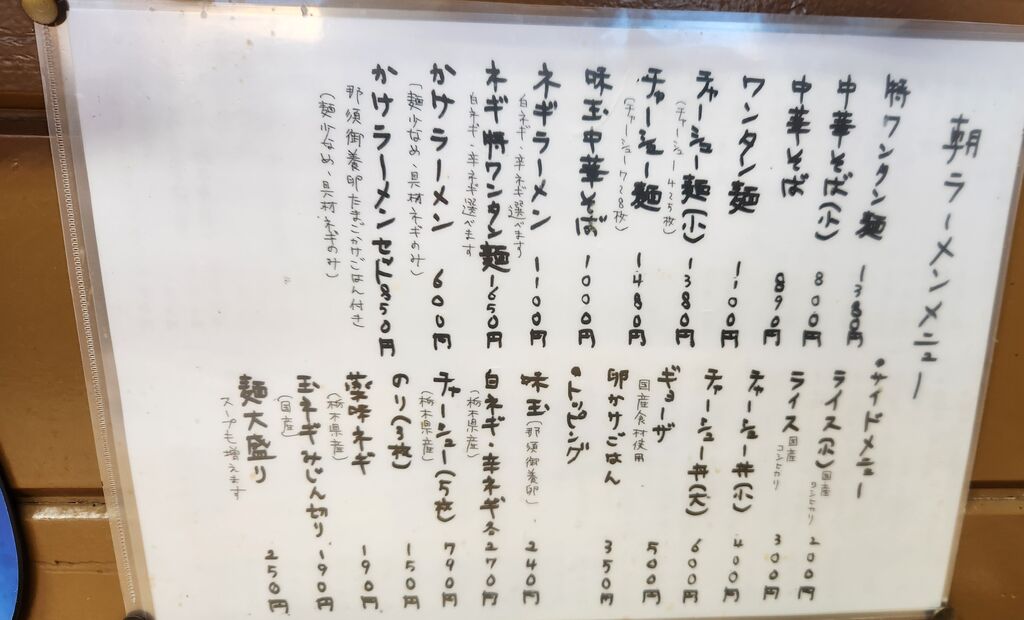 朝ラーメンメニュー
特ワンタン麺 1380円
中華そば(小) 800円
中華そば 890円
ワンタン麺 1100円
チャーシュー麺(小) 1380円
(チャーシュー4~5枚)
チャーシュー麺 1480円
(チャーシュー7~8枚)
味玉中華そば 1000円
ネギラーメン 1100円
白ネギ・辛ネギ選べます
ネギ特ワンタン麺 1650円
白ネギ・辛ネギ選べます
かけラーメン 600円
(麺少なめ、具材ネギのみ)
かけラーメンセット 850円
那須御養卵たまごかけごはん付き
(麺少なめ、具材ネギのみ)
・サイドメニュー
ライス(小) 国産コシヒカリ 200円
ライス 国産コシヒカリ 300円
チャーシュー丼(小) 400円
チャーシュー丼(大) 600円
ギョーザ 500円
国産食材使用
卵かけごはん 350円
・トッピング
味玉(那須御養卵) 240円
白ネギ・辛ネギ各270円
(栃木県産)
チャーシュー(5枚) 790円
(栃木県産)
のり(3枚) 150円
薬味ネギ 190円
(栃木県産)
玉ネギみじん切り 190円
(国産)
麺大盛り 250円
スープも増えます